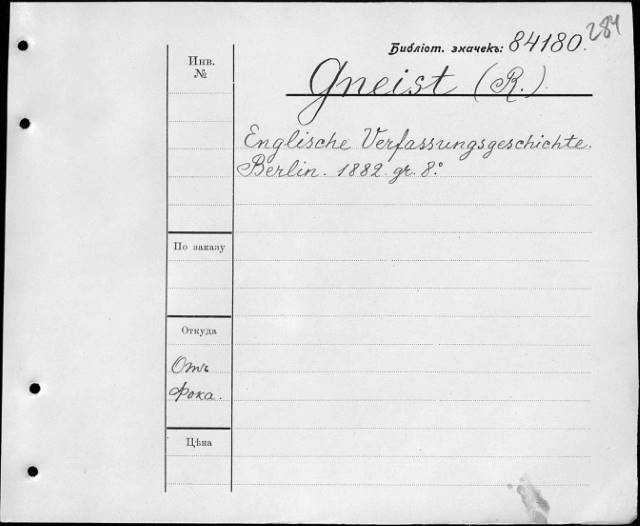 284
Библіот. значекъ: 84180.
Инв.
№
Gneist (R.)
Englische Verfassungsgeschichte.
Berlin. 1882. gr. 8.°
По заказу
Откуда
Отъ
Фока.
Цѣна